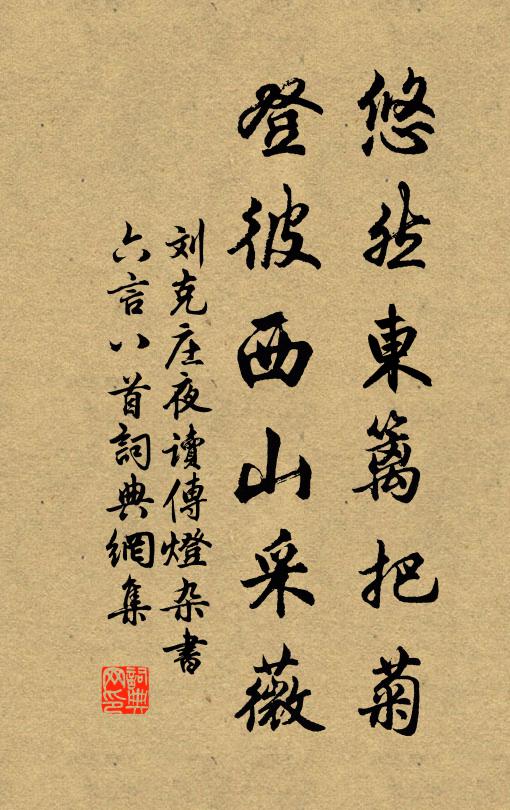 悠然東籬把菊
登彼西山采薇
刘克庄夜讀傳燈杂書
六言八首詞典網集
詞典
网印